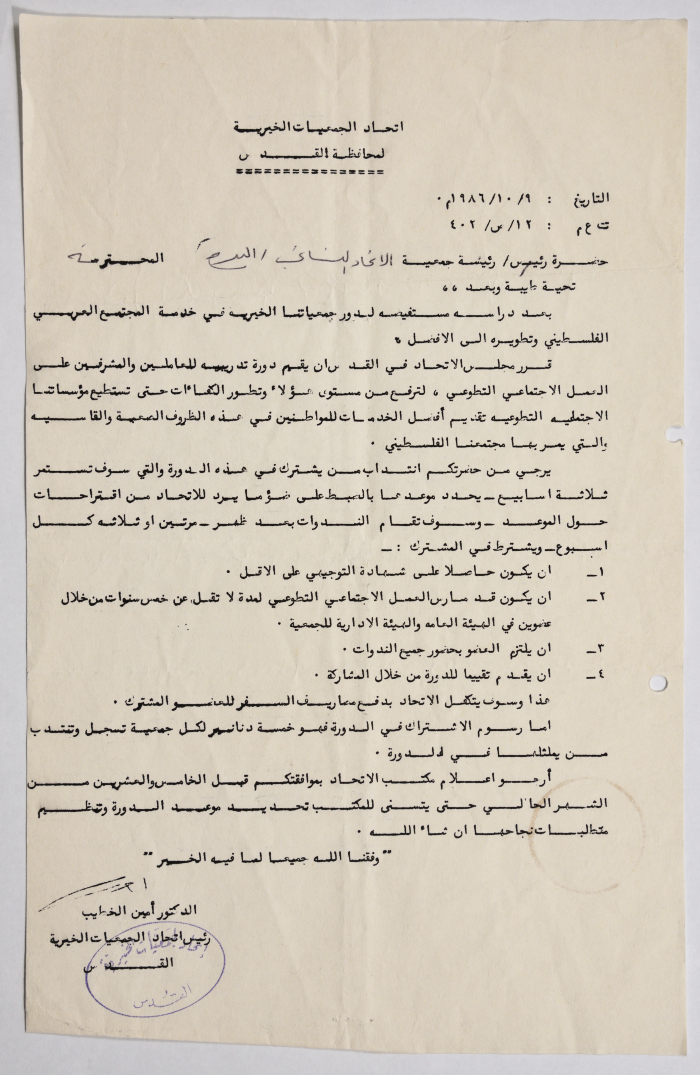 اتحاد الجمعيات الخيرية
لمحافظة القدس
===============
التاريخ : ١٩٨٦/١٠/٩م٠
ت ع م : ١٢/س/٤٠٢
حضرة رئيس/ رئيسة جمعية الاتحاد النسائي / المحترمة
تحية طيبة وبعد ،،
بعد دراسه مستفيضه لدور جمعياتنا الخيريه في خدمة المجتمع العربي
الفلسطيني وتطويره الى الافضل ،
قرر مجلس الاتحاد في القدس ان يقيم دورة تدريبيه للعاملين والمشرفين على
العمل الاجتماعي التطوعي ، لترفع من مستوى هؤلاء وتطور الكفاءات حتى تستطيع مؤسساتنا
الاجتماعيه التطوعيه تقديم أفضل الخدمات للمواطنين في هذه الظروف الصعبة والقاسيه
والتي يمر بها مجتمعنا الفلسطيني ٠
يرجي من حضرتكم انتداب من يشترك في هذه الدورة والتي سوف تستمر
ثلاثة اسابيع ـ يحدد موعدها بالضبط على ضوء ما يرد للاتحاد من اقتراحات
حول الموعد ـ وسوف تقام الندوات بعد ظهر ـ مرتين او ثلاثه كل
اسبوع ـ ويشترط في المشترك : ـ
١ـ ان يكون حاصلا على شهادة التوجيهي على الاقل ٠
٢ـ ان يكون قد مارس العمل الاجتماعي التطوعي لمدة لا تقل عن خمس سنوات من خلال
عضوين في الهيئة العامه والهيئة الادارية للجمعية ٠
٣ـ ان يلتزم العضو بحضور جميع الندوات ٠
٤ـ ان يقدم تقييما للدورة من خلال المشاركة ٠
هذا وسوف يتكفل الاتحاد بدفع مصاريف السفر للعضو المشترك ٠
اما رسوم الاشتراك في الدورة فهو خمسة دنانير لكل جمعية تسجل وتنتدب
من يمثلها في الدورة ٠
أرجو اعلام مكتب الاتحاد بموافقتكم قبل الخامس والعشرين من
الشهر الحالي حتى يتسنى للمكتب تحديد موعد الدورة وتنظيم
متطلبات نجاحها ان شاء الله ٠
" وفقنا الله جميعا لما فيه الخير "
الدكتور أمين الخطيب
رئيس اتحاد الجمعيات الخيرية
القدس
اتحاد الجمعيات الخيرية
القدس